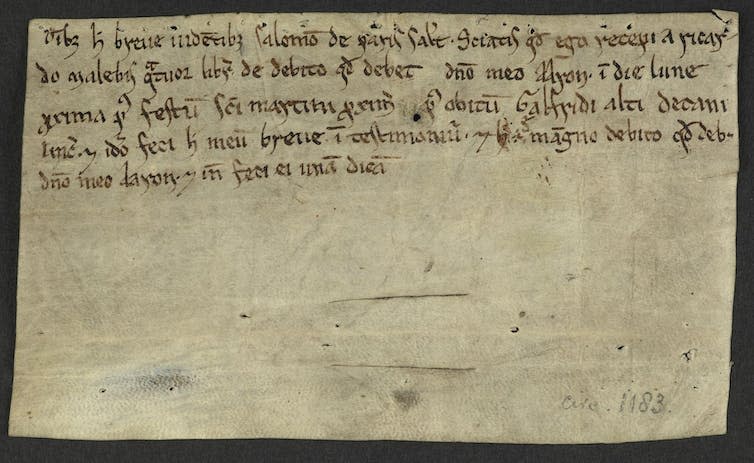 Oībꝫ h̄ breue uidētibꝫ salomō de parisi᷒ salt̄. Sciatis qd̄ ego recepi a ricar
do malebis q̄tuor libr̄ de debito qd̄ debet dn̄o meo Aaron. ī die lune
proxima p᷒ festū sc̄i martini proxim̄ p᷒ obitū Galfridi alti decani
linc̄. ⁊ iđo feci h̄ meū breue ī testimoniū. ⁊ h̄ magno debito qd̄ deb
dn̄o meo Aaron. ⁊ īn feci ei unā dicā
circ. 1183.